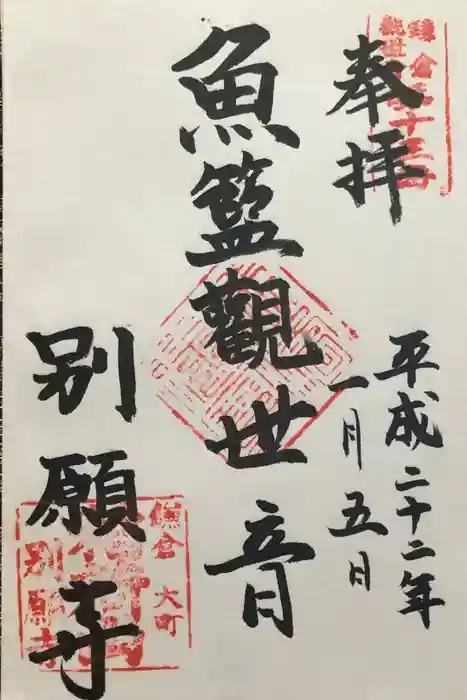 奉拝
鎌倉三十三
観世
平成二十二年
一月五日
魚籃觀世音
別願寺
鎌倉
大町
別願寺